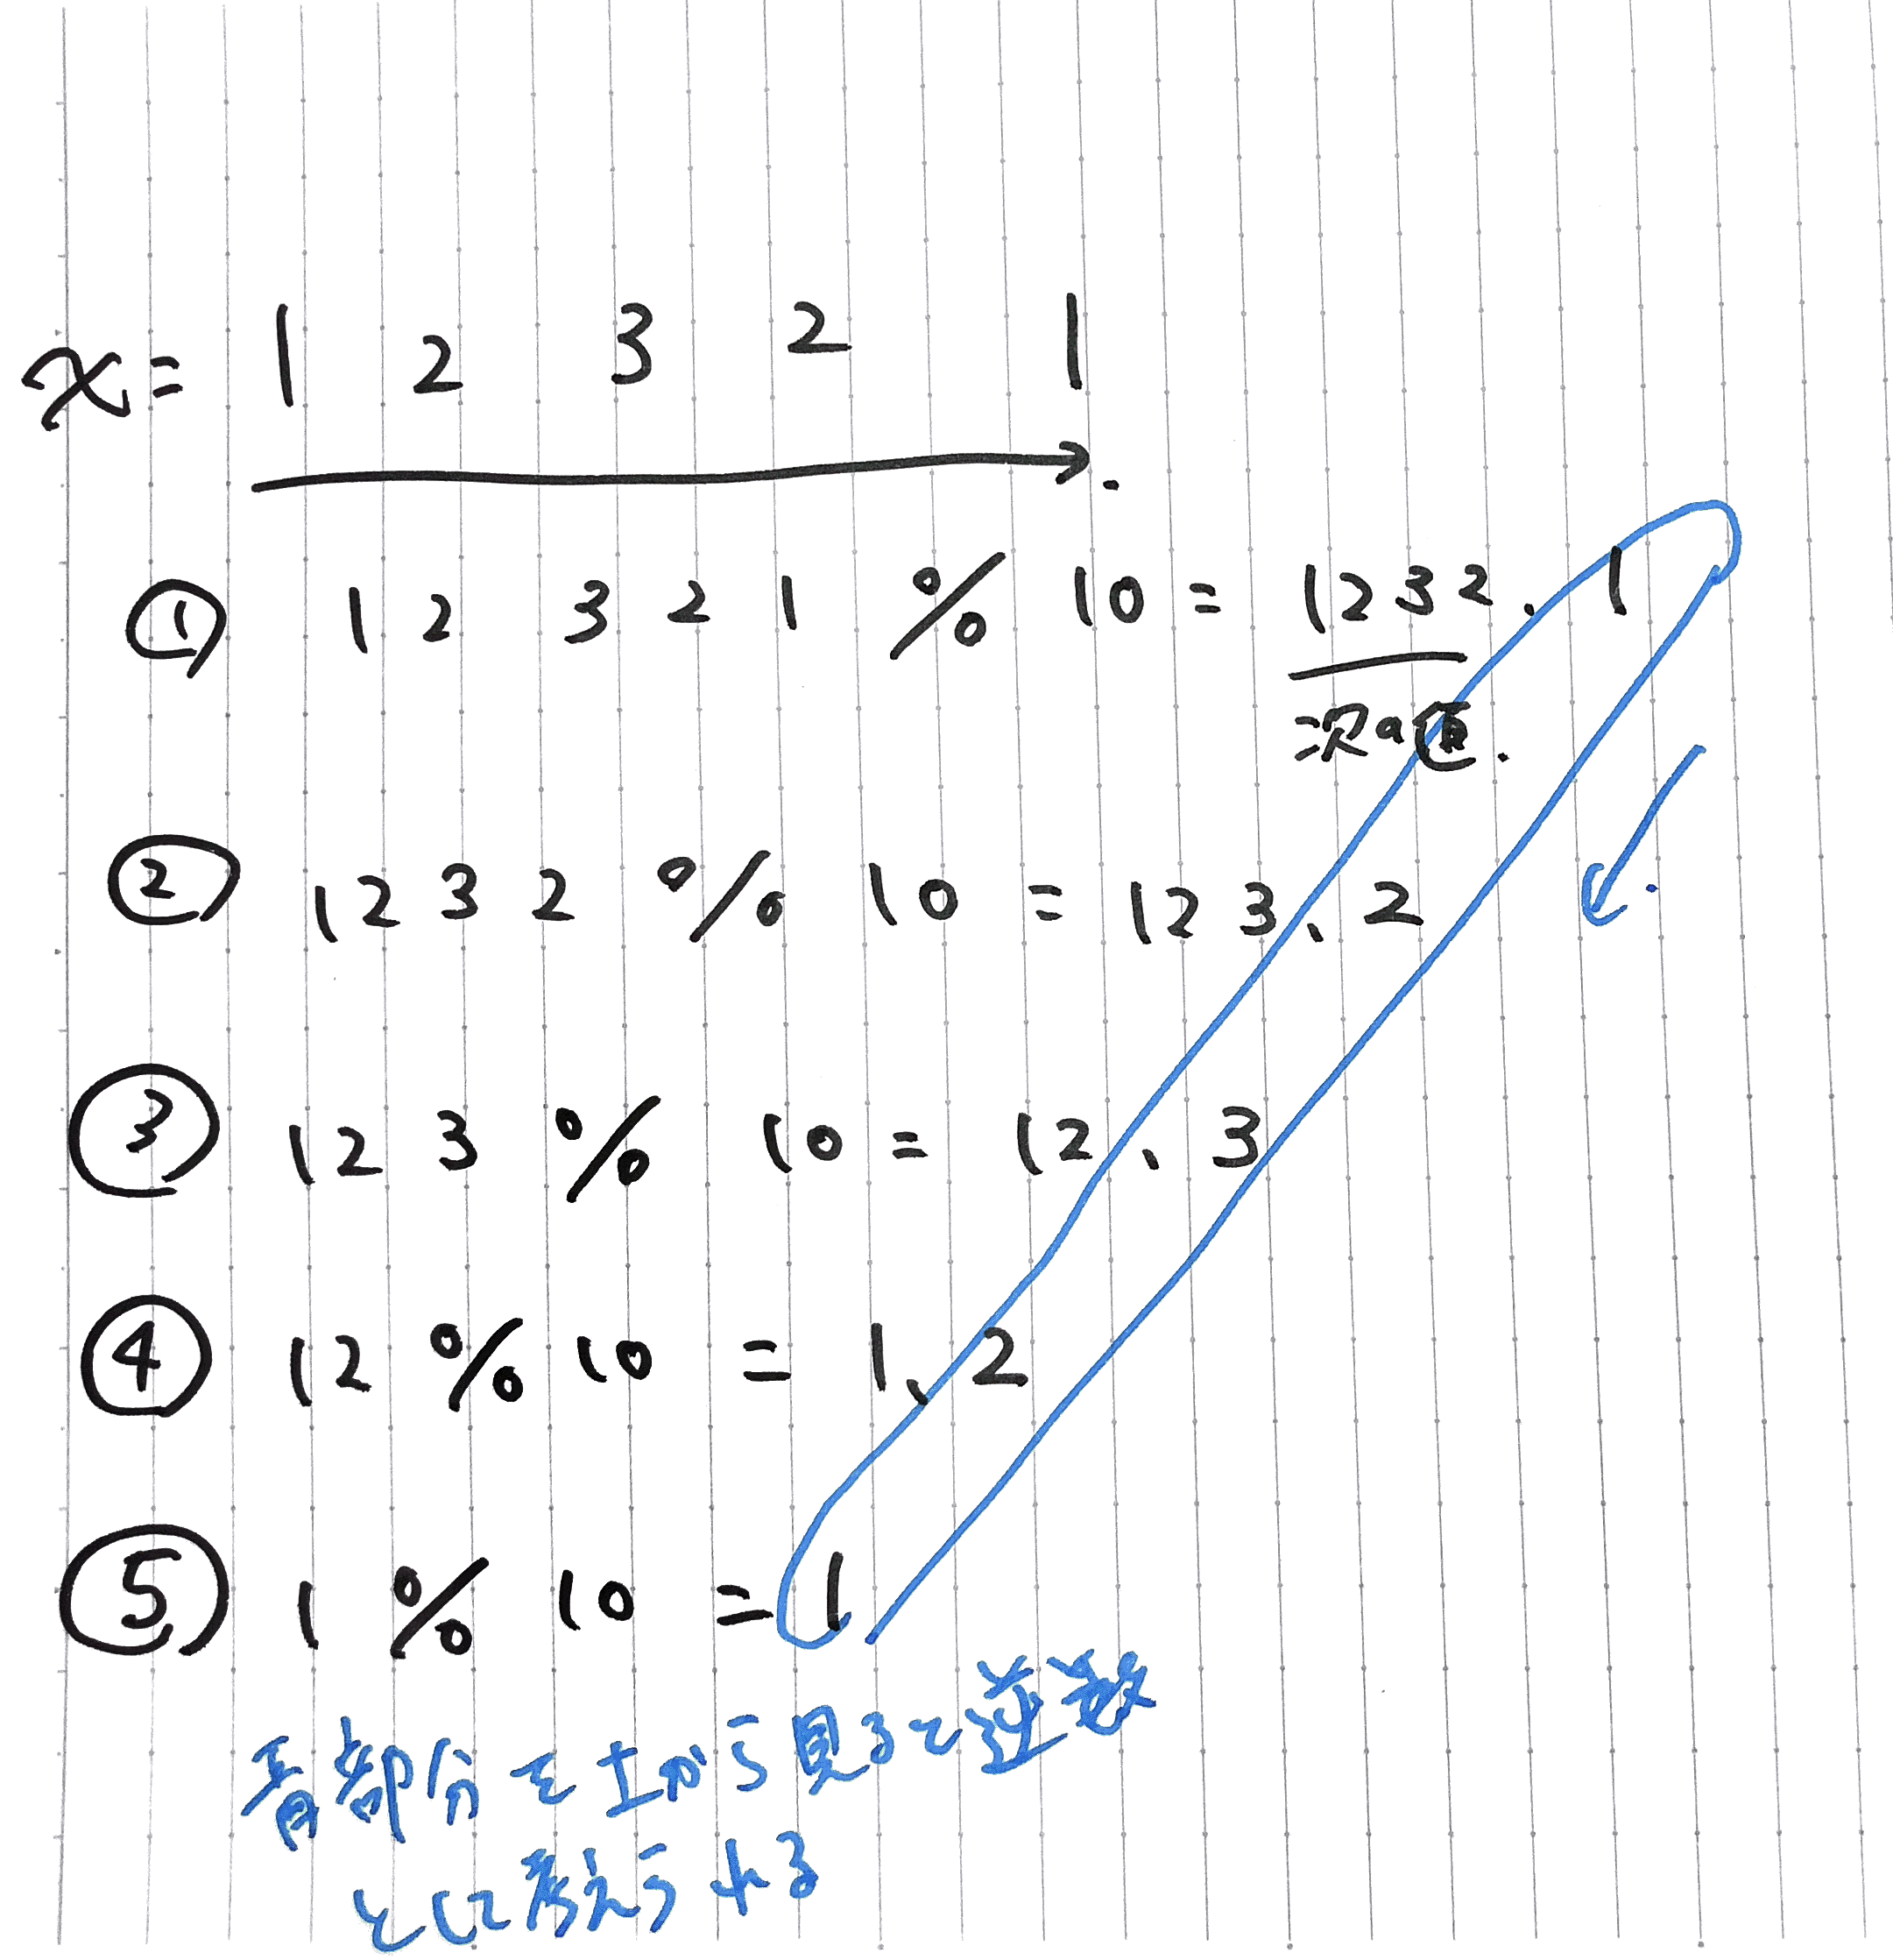 x= 1 2 3 2 1
① 1 2 3 2 1 % 10 = 1232. 1
次の値.
② 1232 % 10 = 123. 2
③ 123 % 10 = 12. 3
④ 12 % 10 = 1. 2
⑤ 1 % 10 = 1
青部分を上から見ると逆数
として考えられる